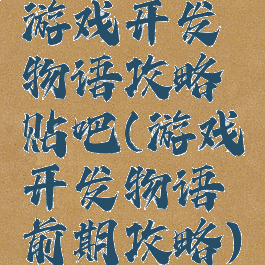 游戏开发
物语攻略
贴吧(游戏
开发物语
前期攻略)